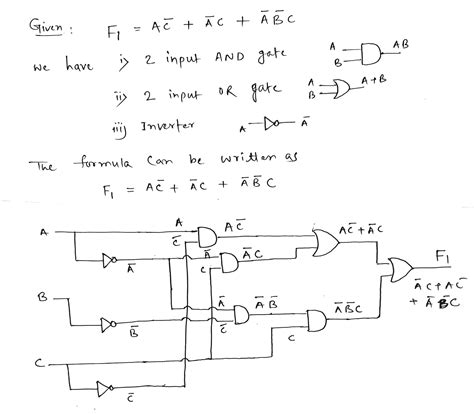 Given : F₁ = AC̅ + A̅C + A̅B̅C
we have i) 2 input AND gate A B AB
ii) 2 input OR gate A B A+B
iii) Inverter A A̅
The formula can be written as
F₁ = AC̅ + A̅C + A̅B̅C
A A C̅ AC̅ AC̅+A̅C
A̅ A̅ C A̅C F₁
A̅C+AC̅
+ A̅B̅C
B A̅ A̅B̅ A̅B̅C
B̅ C̅ C
C
C̅